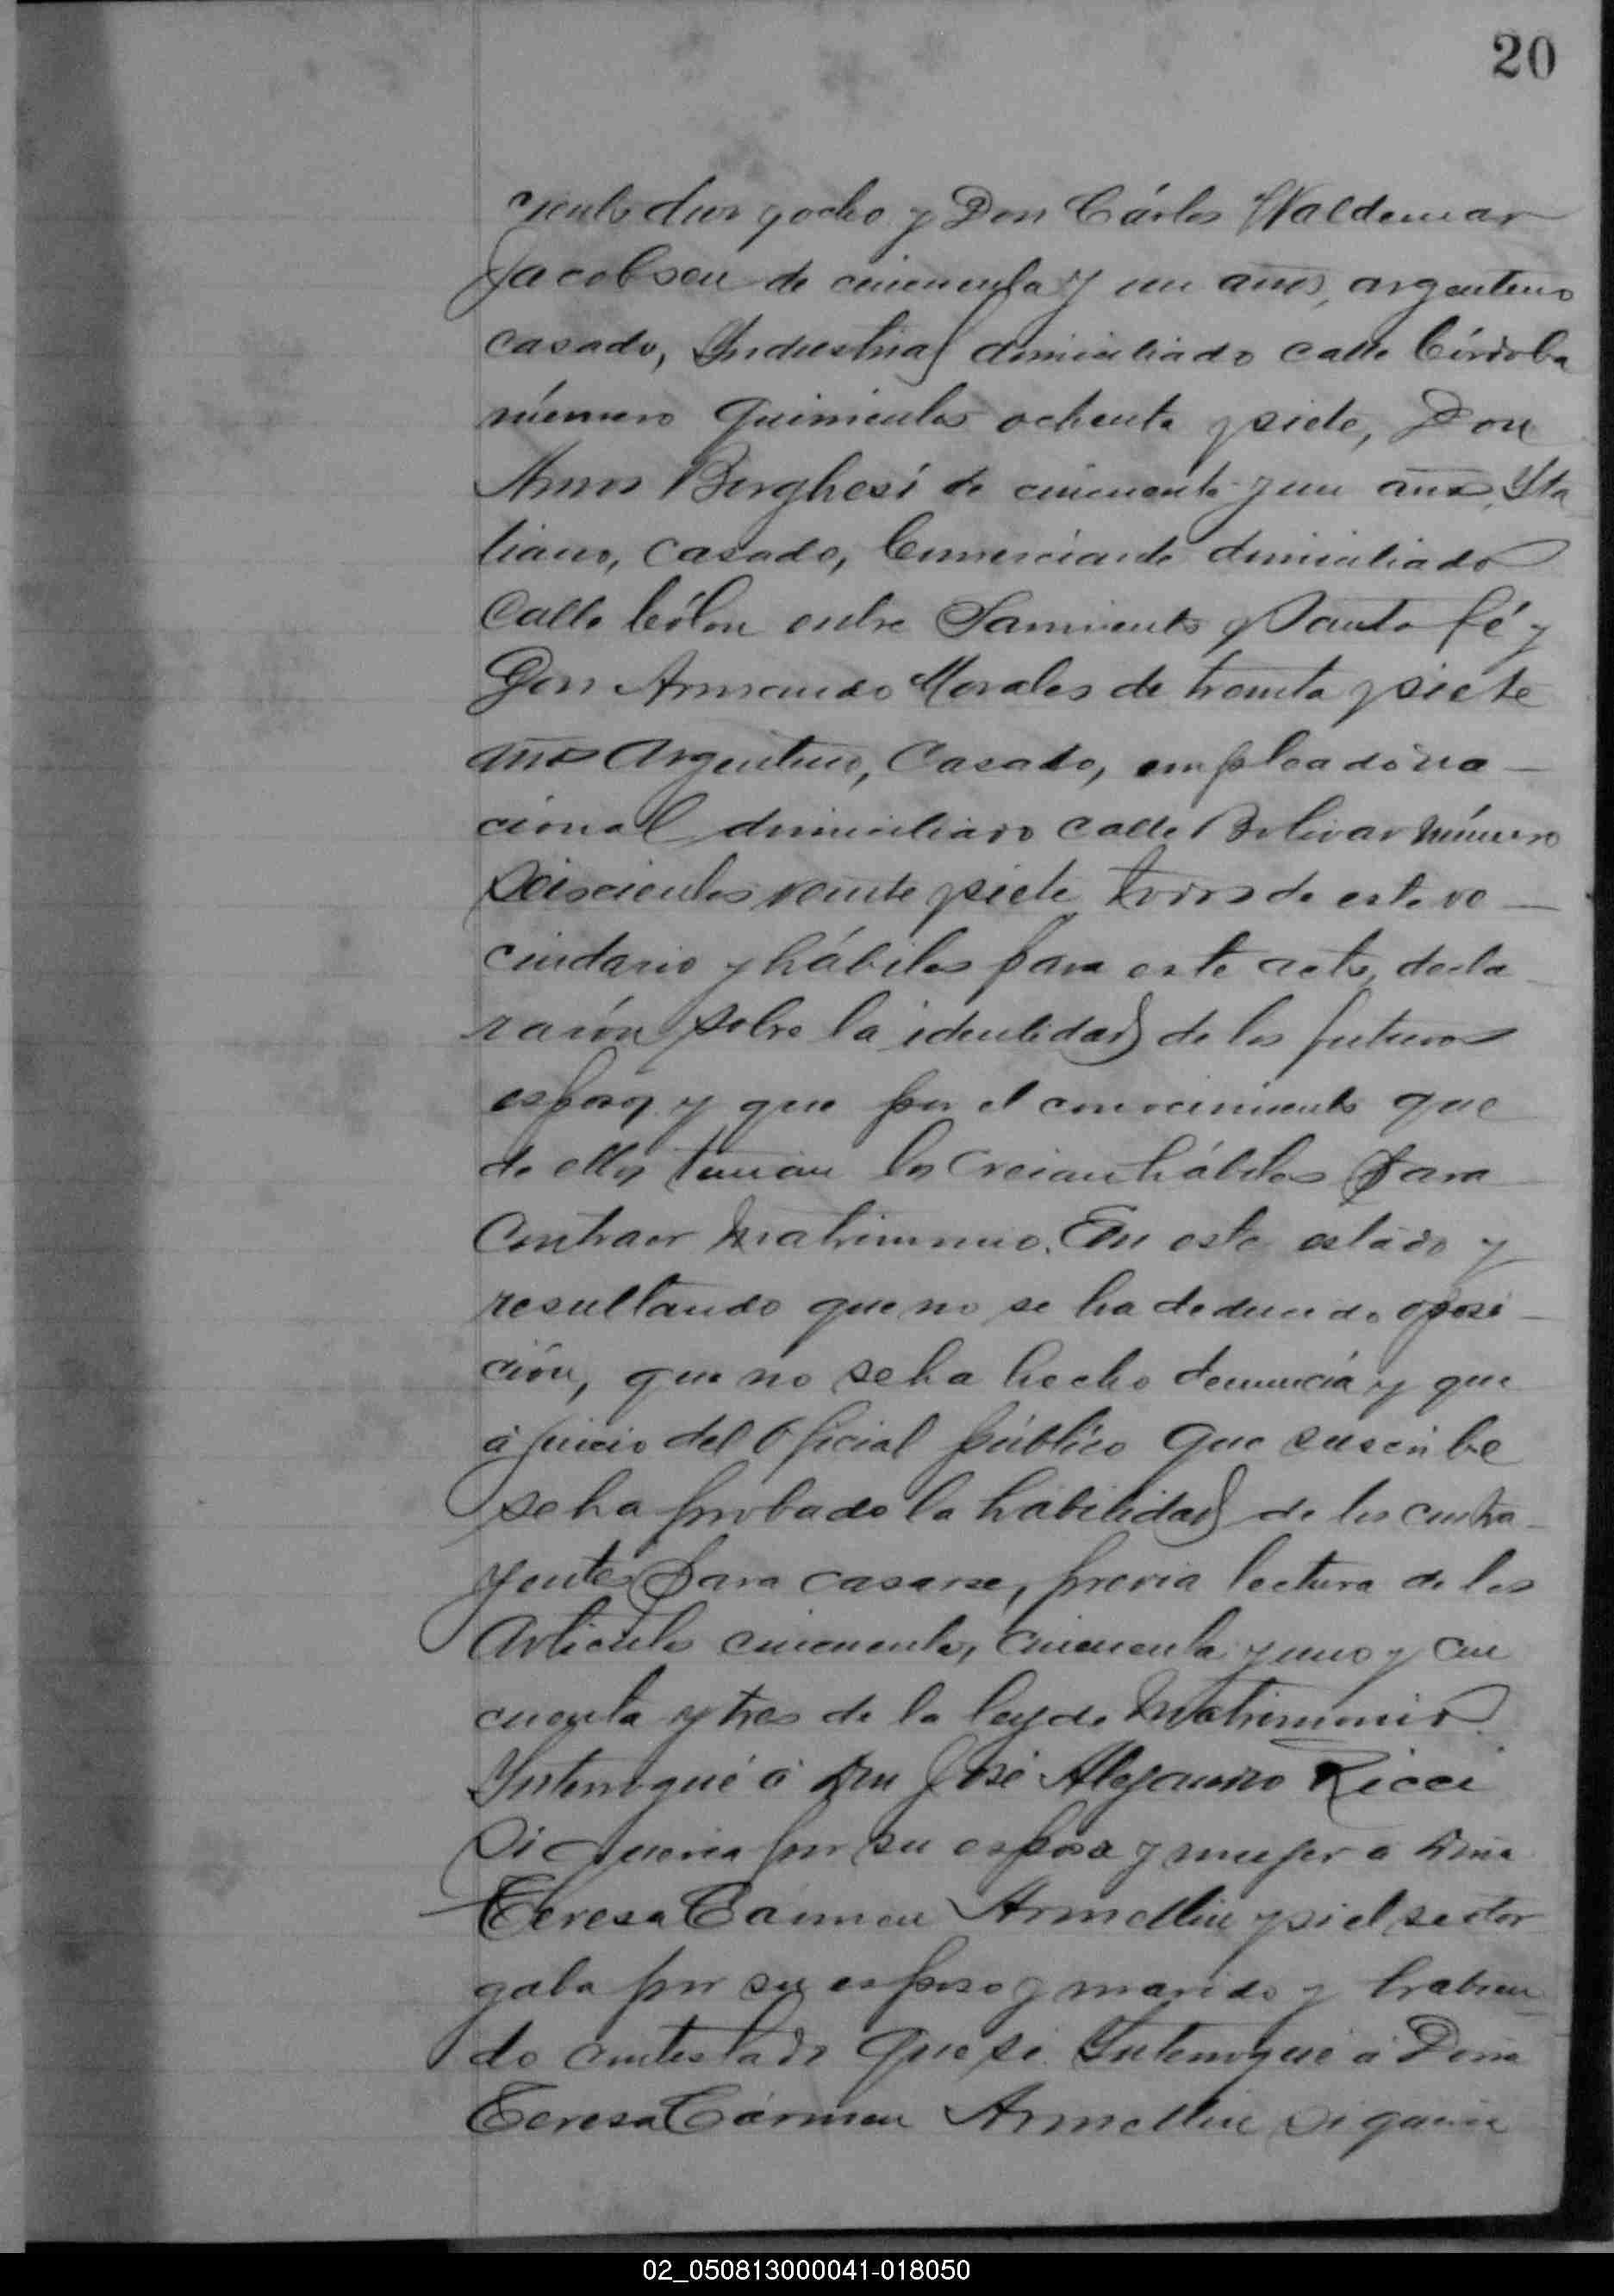 20
ciento diez y ocho y Don Cárlos Waldemar
Jacobsen de cincuenta y un años, argentino
casado, Industrial domiciliado calle Córdoba
número quinientos ochenta y siete, Don
Borghesi de cincuenta y un años, Yta
liano, casado, Comerciante domiciliado
Calle Cólon entre Sarmiento y Santa Fé y
Don Armando Morales de treinta y siete
años Argentino, Casado, empleado na
cional domiciliado calle Bolivar número
Seiscientos veinte y siete todos de este ve
cindario y hábiles para este acto, decla
rarón sobre la identidad de los futuros
esposos y que por el conocimiento que
de ellos tenian los creian hábiles para
Contraer Matrimonio. En este estado y
resultando que no se ha deducido oposi
ción, que no se ha hecho denuncia y que
á juicio del Oficial público que suscribe
se ha probado la habilidad de los contra
yentes para casarse, previa lectura de los
Articulos cincuenta, cincuenta y uno y cin
cuenta y tres de la ley de Matrimonio
Ynterrogué á Don José Alejandro Ricci
Si queria por su esposa y mujer a Doña
Teresa Cármen Armellin y si él se otor
gaba por su esposo y marido y habien
do contestado que si Ynterrogué á Doña
Teresa Cármen Armellin si queria
02_050813000041-018050